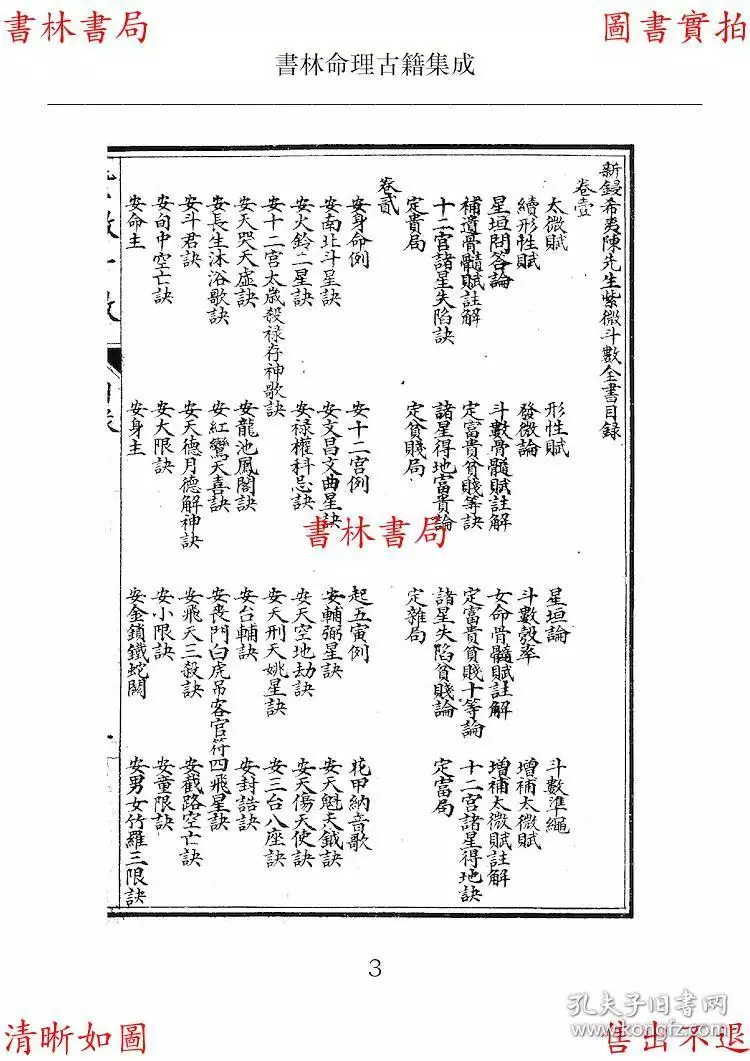 書林書局
圖書實拍
書林命理古籍集成
新鋟希夷陳先生紫微斗數全書目録
卷壹
太微賦 形性賦 星垣論 斗數準繩
續形性賦 發微論 斗數彀率 增補太微賦
星垣問答論 斗數骨髓賦註解 女命骨髓賦註解 增補太微賦註解
補遺骨髓賦註解 定富貴貧賤等訣 定富貴貧賤十等論 十二宮諸星得地訣
十二宮諸星失陷訣 諸星得地富貴論 諸星失陷貧賤論 定富局
定貴局 定貧賤局 定雜局
卷貳
安身命例 安十二宮例 起五寅例 花甲納音歌
安南北斗星訣 安文昌文曲星訣 安輔弼星訣 安天魁天鉞訣
安火鈴二星訣 安禄權科忌訣 安天空地劫訣 安天傷天使訣
安十二宮太歲殺禄存神歌訣 安天刑天姚星訣 安三台八座訣
安天哭天虛訣 安龍池鳳閣訣 安台輔訣 安封誥訣
安長生沐浴歌訣 安紅鸞天喜訣 安喪門白虎吊客官符四飛星訣
安斗君訣 安天德月德解神訣 安飛天三殺訣 安截路空亡訣
安旬中空亡訣 安大限訣 安小限訣 安童限訣
安命主 安身主 安金鎖鐵蛇關 安男女竹羅三限訣
書林書局
3
清晰如圖
售出不退
孔夫子旧书网
www.kongfz.com